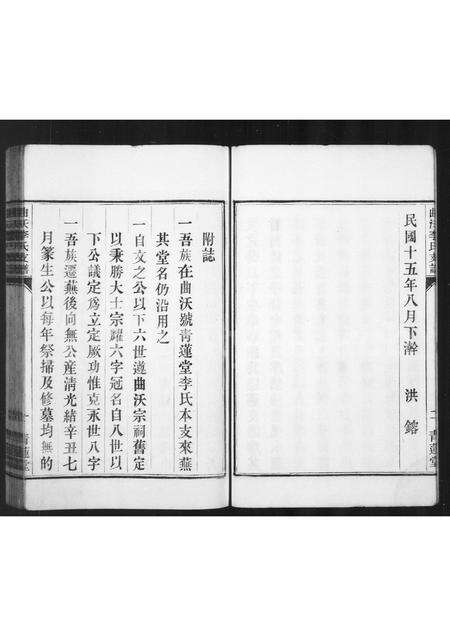 曲沃李氏支譜
二 青蓮堂
民國十五年八月下澣 洪鎔
附誌
一吾族在曲沃號青蓮堂李氏本支來蕪
其堂名仍沿用之
一自文之公以下六世遵曲沃宗祠舊定
以秉勝大士宗耀六字冠名自八世以
下公議定為立定厥功惟克永世八字
一吾族遷蕪後向無公産清光緒辛丑七
月篆生公以每年祭掃及修墓均無的
曲沃李氏支譜
一 青蓮堂